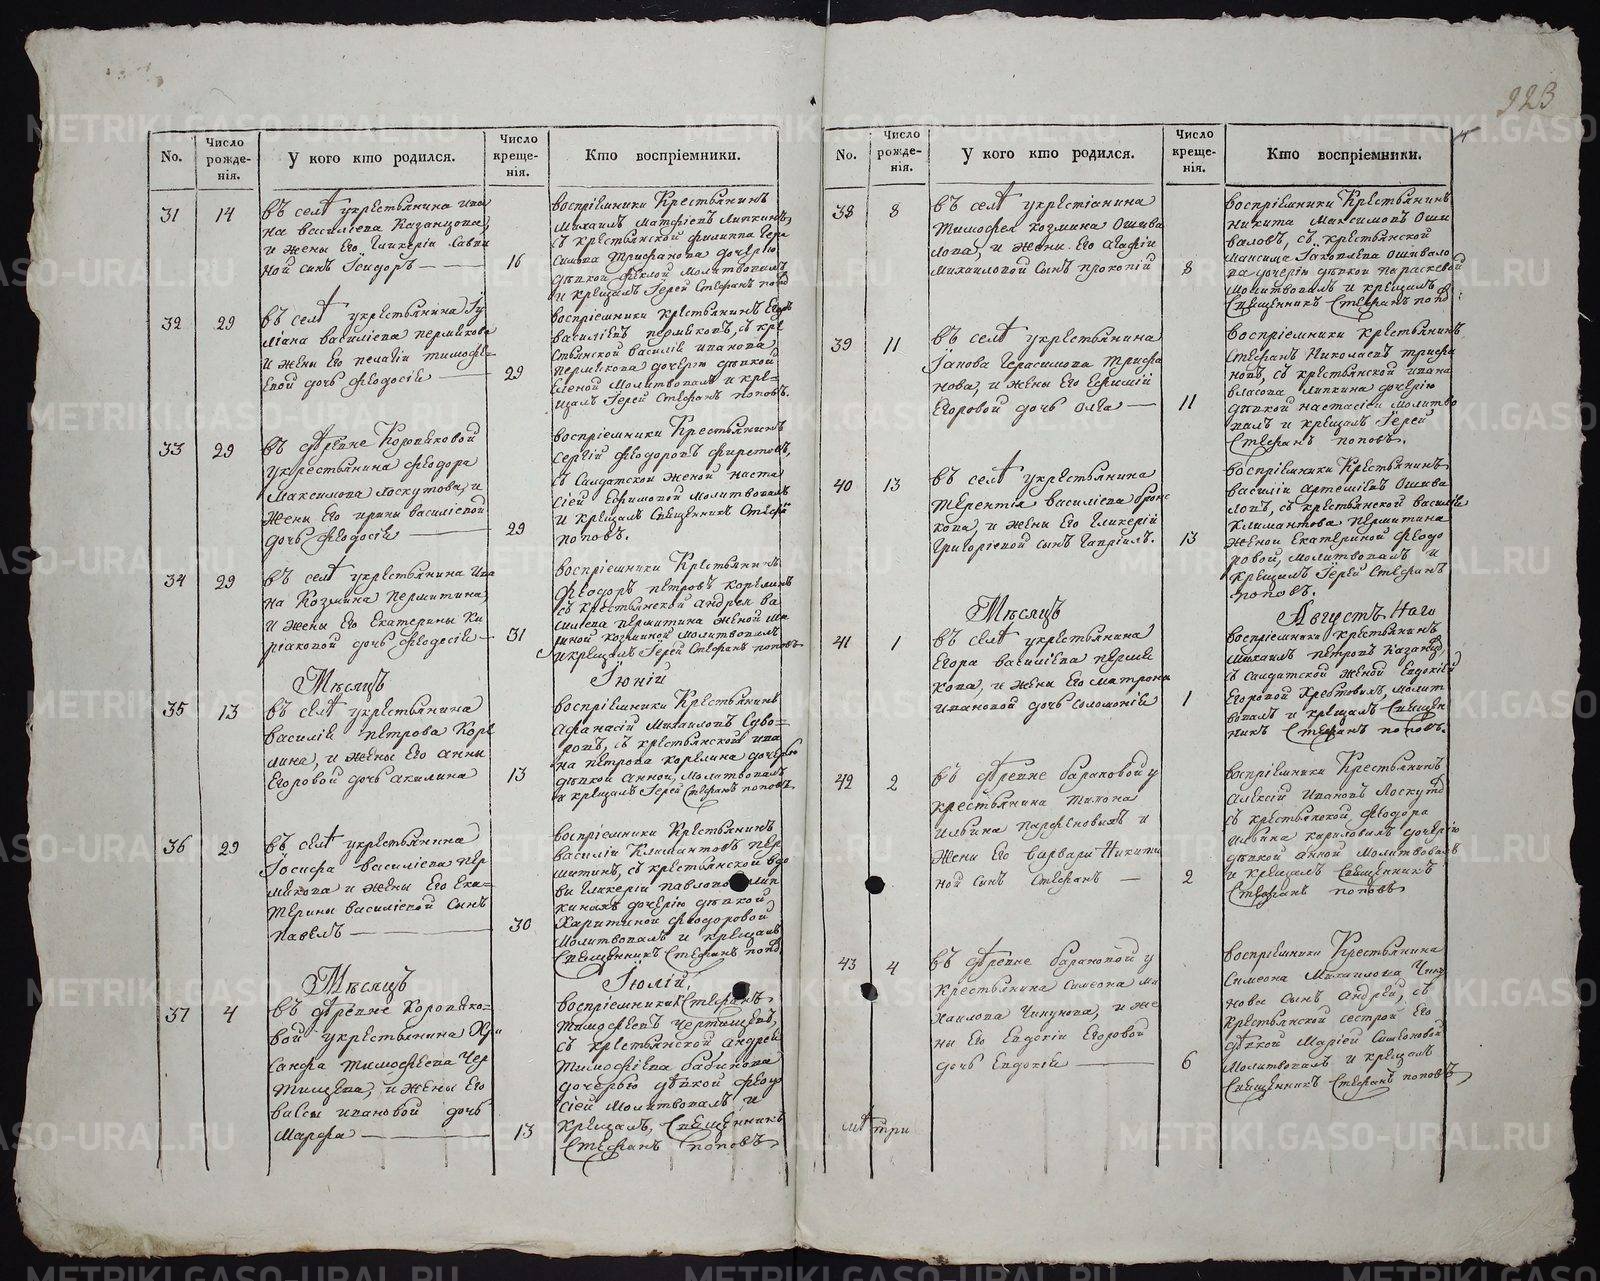 923
No.
Число рожденія.
У кого кто родился.
Число крещенія.
Кто воспріемники.
31
14
въ селѣ укрестьянина ива
на василіева Казанцова,
и жены Его Гликеріи Савви
ной сынъ Ісидоръ
16
воспріемники Крестьянинъ
Михаилъ Матфіевъ Липкинъ,
съ крестьянской филиппа Гера
симова Трифанова дочерію
дѣвкой феклой молитвовалъ
и крещалъ Іерей Стефанъ попо
32
29
въ селѣ укрестьянина Іу
ліана василіева пермякова
и жены Его пелагіи тимофѣ=
евой дочь феодосія
29
воспріемники крестьянинъ Егоръ
василіевъ пермяковъ, съ кре
стьянской василія иванова
пермякова дочерію дѣвкой
Еленой молитвовалъ и кре=
щалъ Іерей Стефанъ поповъ.
33
29
въ дѣревне Коровяковой
укрестьянина феодора
Максимова лоскутова, и
жены Его ирины василіевой
дочь феодосія
29
воспріемники Крестьянинъ
Сергій феодоровъ
съ Салдатской женой наста
сіей Ефимовой молитвовалъ
и крещалъ Священникъ Стефа
поповъ.
34
29
въ селѣ укрестьянина Ива
на Козмина пермитина,
и жены Его Екатерины Ки
ріаковой дочь феодосія
31
воспріемники Крестьянинъ
феодоръ петровъ корелинъ
съ крестьянской андрея ва
силева пермитина женой ма
риной козминой молитвовалъ
и крещалъ Іерей Стефанъ поповъ
Мѣсяцъ
Іюній
35
13
въ селѣ укрестьянина
василія петрова Коре
лина, и жены Его анны
Егоровой дочь акилина
13
воспріемники Крестьянинъ
афанасій Михаиловъ Суво=
ровъ, съ крестьянской ива
на петрова корелина дочерью
дѣвкой анной, молитвовалъ
и крещалъ Іерей Стефанъ поповъ
36
29
въ селѣ укрестьянина
Іосифа василіева пер
мякова и жены Его Ека=
терины василіевой сынъ
павелъ
30
воспріемники Крестьянинъ
василіи Климантовъ пер
митинъ, съ крестьянской вдо
вы гликеріи павловой лип
киныхъ дочерію дѣвкой
Харитиной феодоровой
молитвовалъ и крещалъ
Священникъ Стефанъ попо
Мѣсяцъ
Іюлій.
37
4
въ дѣревне Коровяко=
вой укрестьянина Хри
санфа тимофѣева Чер
тищева, и жены Его
васы ивановой дочь
Марфа
13
воспріемники Стефанъ
тимофѣевъ Чертищевъ,
съ крестьянской андрея
тимофѣева бабинова
дочерью дѣвкой феодо
сіей молитвовалъ и
крещалъ, Священникъ
Стефанъ поповъ
No.
Число рожденія.
У кого кто родился.
Число крещенія.
Кто воспріемники.
38
8
въ селѣ укрестіанина
тимофея козмина ошива
лова, и жены Его агафіи
михаиловой сынъ прокопій
8
воспріемники Крестьянинъ
никита Максимовъ оши
валовъ, съ крестьянской
максима Іаковлева ошивало
ва дочерію дѣвкой параскевой
молитвовалъ и крещалъ
Священникъ Стефанъ попо
39
11
въ селѣ укрестьянина
Іакова Герасимова трифа
нова, и жены Его Евфиміи
Егоровой дочь олга
11
воспріемники крестьянинъ
Стефанъ Николаевъ трифа
новъ, съ крестьянской ивана
власова липкина дочерію
дѣвкой настасіей молитво
валъ и крещалъ Іерей
Стефанъ поповъ.
40
13
въ селѣ укрестьянина
терентія василіева
кова, и жены Его Гликеріи
Григоріевой сынъ Гавріилъ.
13
воспріемники Крестьянинъ
василіи артеміевъ ошива
ловъ, съ крестьянской василія
климантова пермитина
женой Екатериной феодо
ровой, молитвовалъ и
крещалъ Іерей Стефанъ
поповъ.
Мѣсяцъ
Августъ
41
1
въ селѣ укрестьянина
Егора василіева пермя
кова, и жены Его матроны
ивановой дочь соломонія
1
воспріемники крестьянинъ
михаилъ петровъ казанцо
съ салдатской женой Евдокіей
Егоровой молит
вовалъ и крещалъ Священ
никъ Стефанъ поповъ.
42
2
въ дѣревне бараковой у
крестьянина
ильина парфеновыхъ и
жены Его варвары Никити
ной сынъ Стефанъ
2
воспріемники Крестьянинъ
алексій ивановъ лоскуто
съ крестьянской феодора
ильина дочерію
дѣвкой анной молитвовалъ
и крещалъ Священникъ
Стефанъ поповъ
43
4
въ дѣревне бараковой у
крестьянина Симеона ми
хаилова Чикунова, и же
ны Его Евдокіи Егоровой
дочь Евдокія
6
воспріемники Крестьянина
Симеона михаилова Чику
нова сынъ андрей, съ
крестьянской сестрой Его
дѣвкой маріей Симеоновой
молитвовалъ и крещалъ
Священникъ Стефанъ поповъ